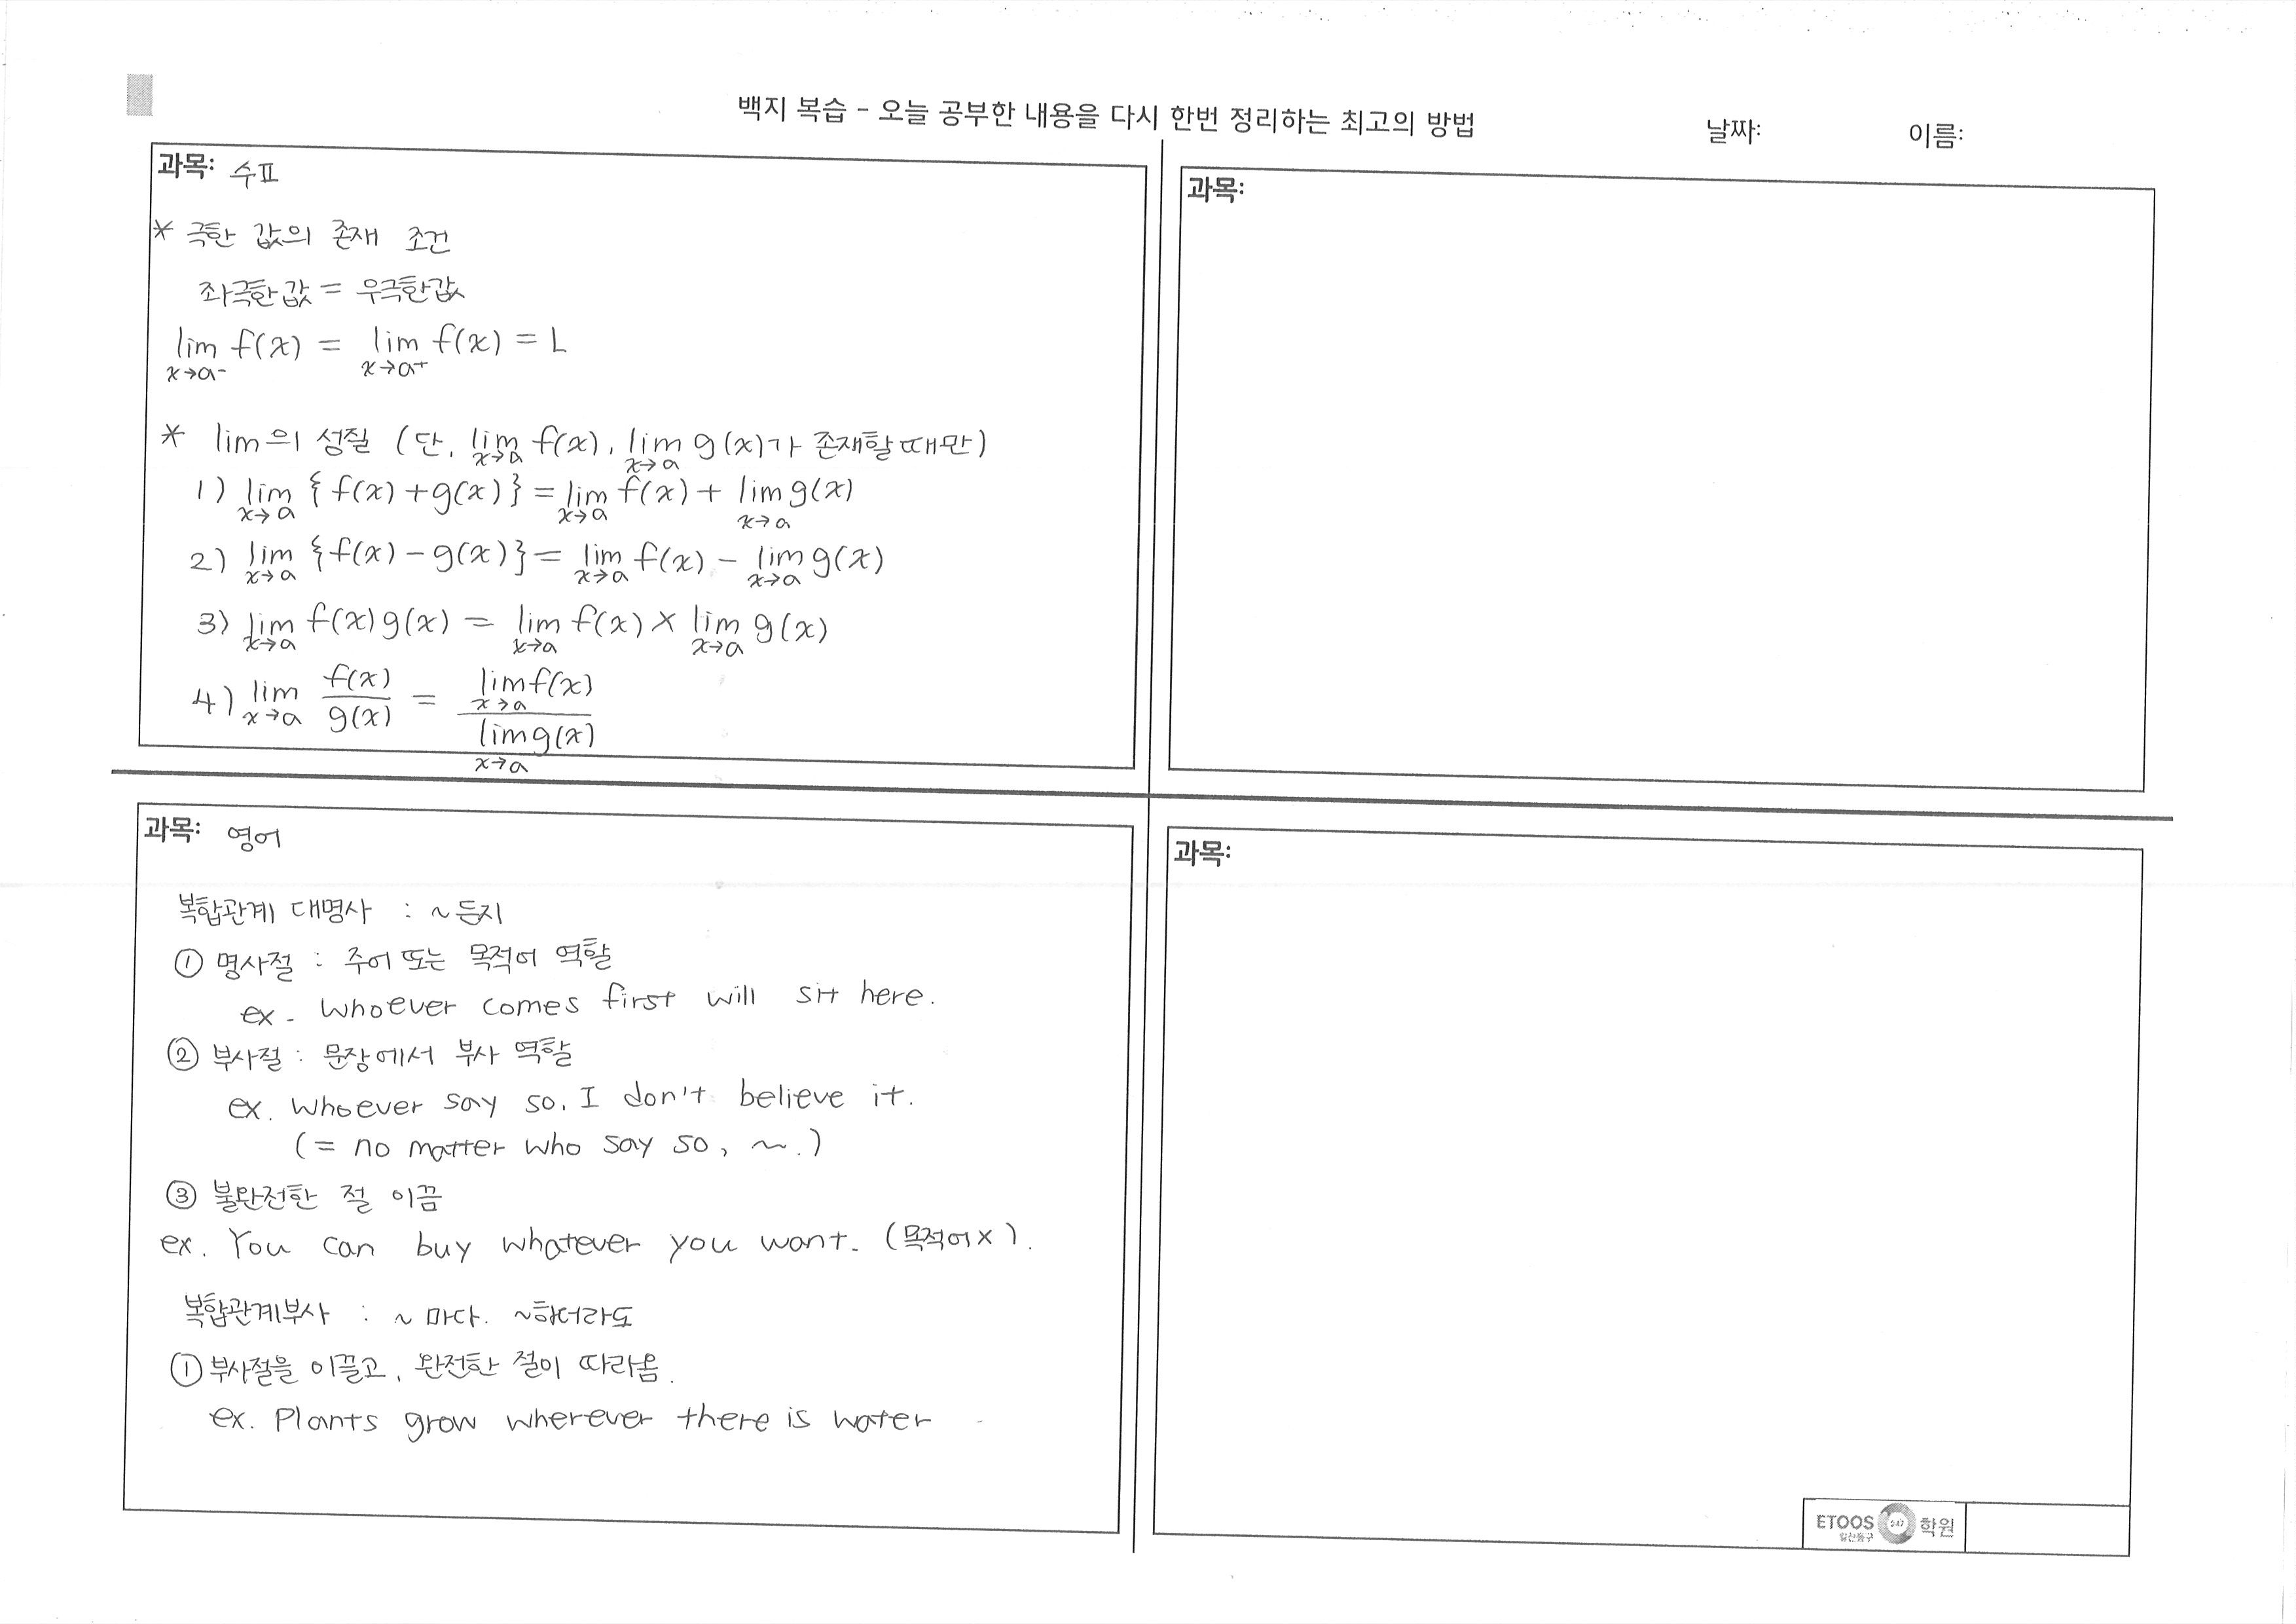 백지 복습 - 오늘 공부한 내용을 다시 한번 정리하는 최고의 방법
날짜:
이름:
과목: 수Ⅱ
* 극한 값의 존재 조건
좌극한값 = 우극한값
lim f(x) = lim f(x) = L
x→a- x→a+
* lim의 성질 (단, lim f(x), lim g(x)가 존재할때만)
x→a x→a
1) lim {f(x)+g(x)} = lim f(x) + lim g(x)
x→a x→a x→a
2) lim {f(x)-g(x)} = lim f(x) - lim g(x)
x→a x→a x→a
3) lim f(x)g(x) = lim f(x) × lim g(x)
x→a x→a x→a
4) lim f(x)/g(x) = lim f(x) / lim g(x)
x→a x→a x→a
과목:
과목: 영어
복합관계 대명사 : ~든지
① 명사절 : 주어 또는 목적어 역할
ex. Whoever comes first will sit here.
② 부사절 : 문장에서 부사 역할
ex. Whoever say so, I don't believe it.
(= no matter who say so, ~.)
③ 불완전한 절 이끔
ex. You can buy whatever you want. (목적어 X).
복합관계부사 : ~마다. ~하더라도
① 부사절을 이끌고, 완전한 절이 따라옴.
ex. Plants grow wherever there is water
과목:
ETOOS 247 학원
일산동구